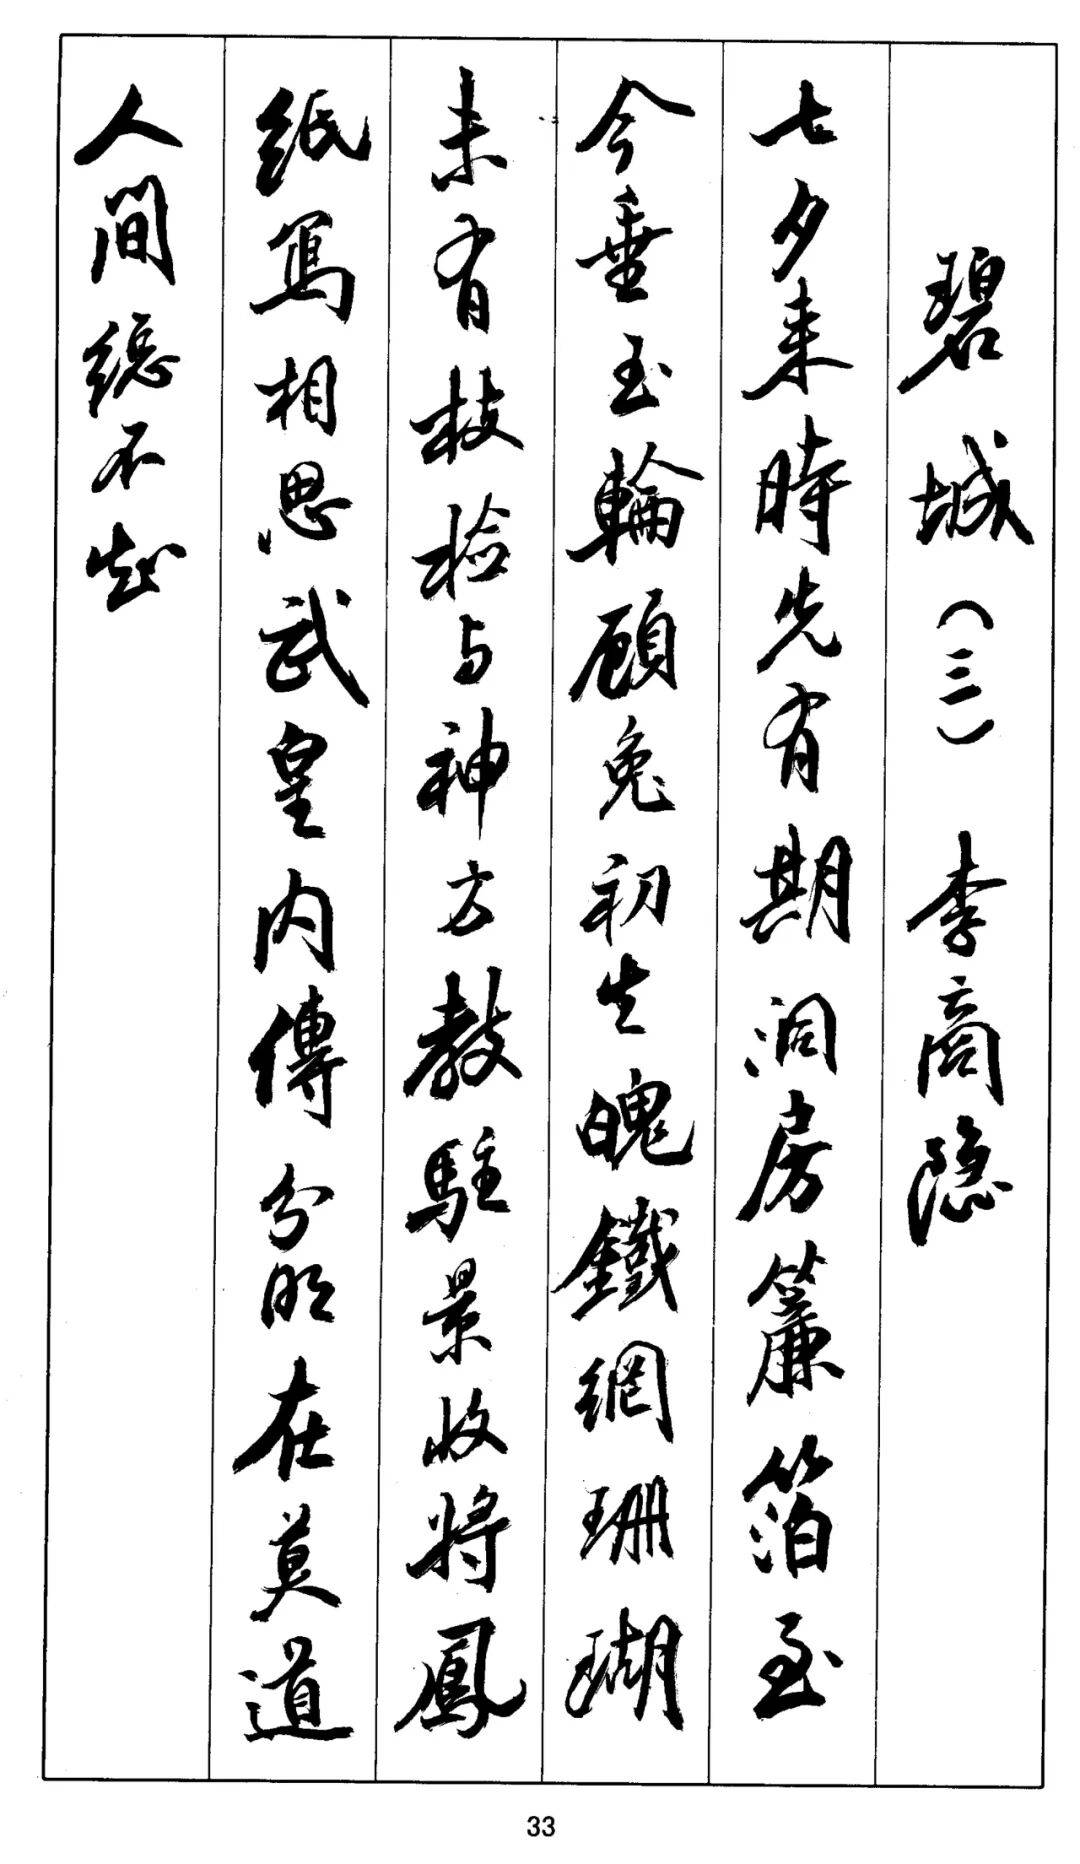 碧城（三） 李商隐
七夕来時先有期洞房簾箔至
今垂玉輪顾兔初生魄鐵網珊瑚
未有枝检与神方教駐景收将鳳
纸寫相思武皇内傳分明在莫道
人間總不知
33